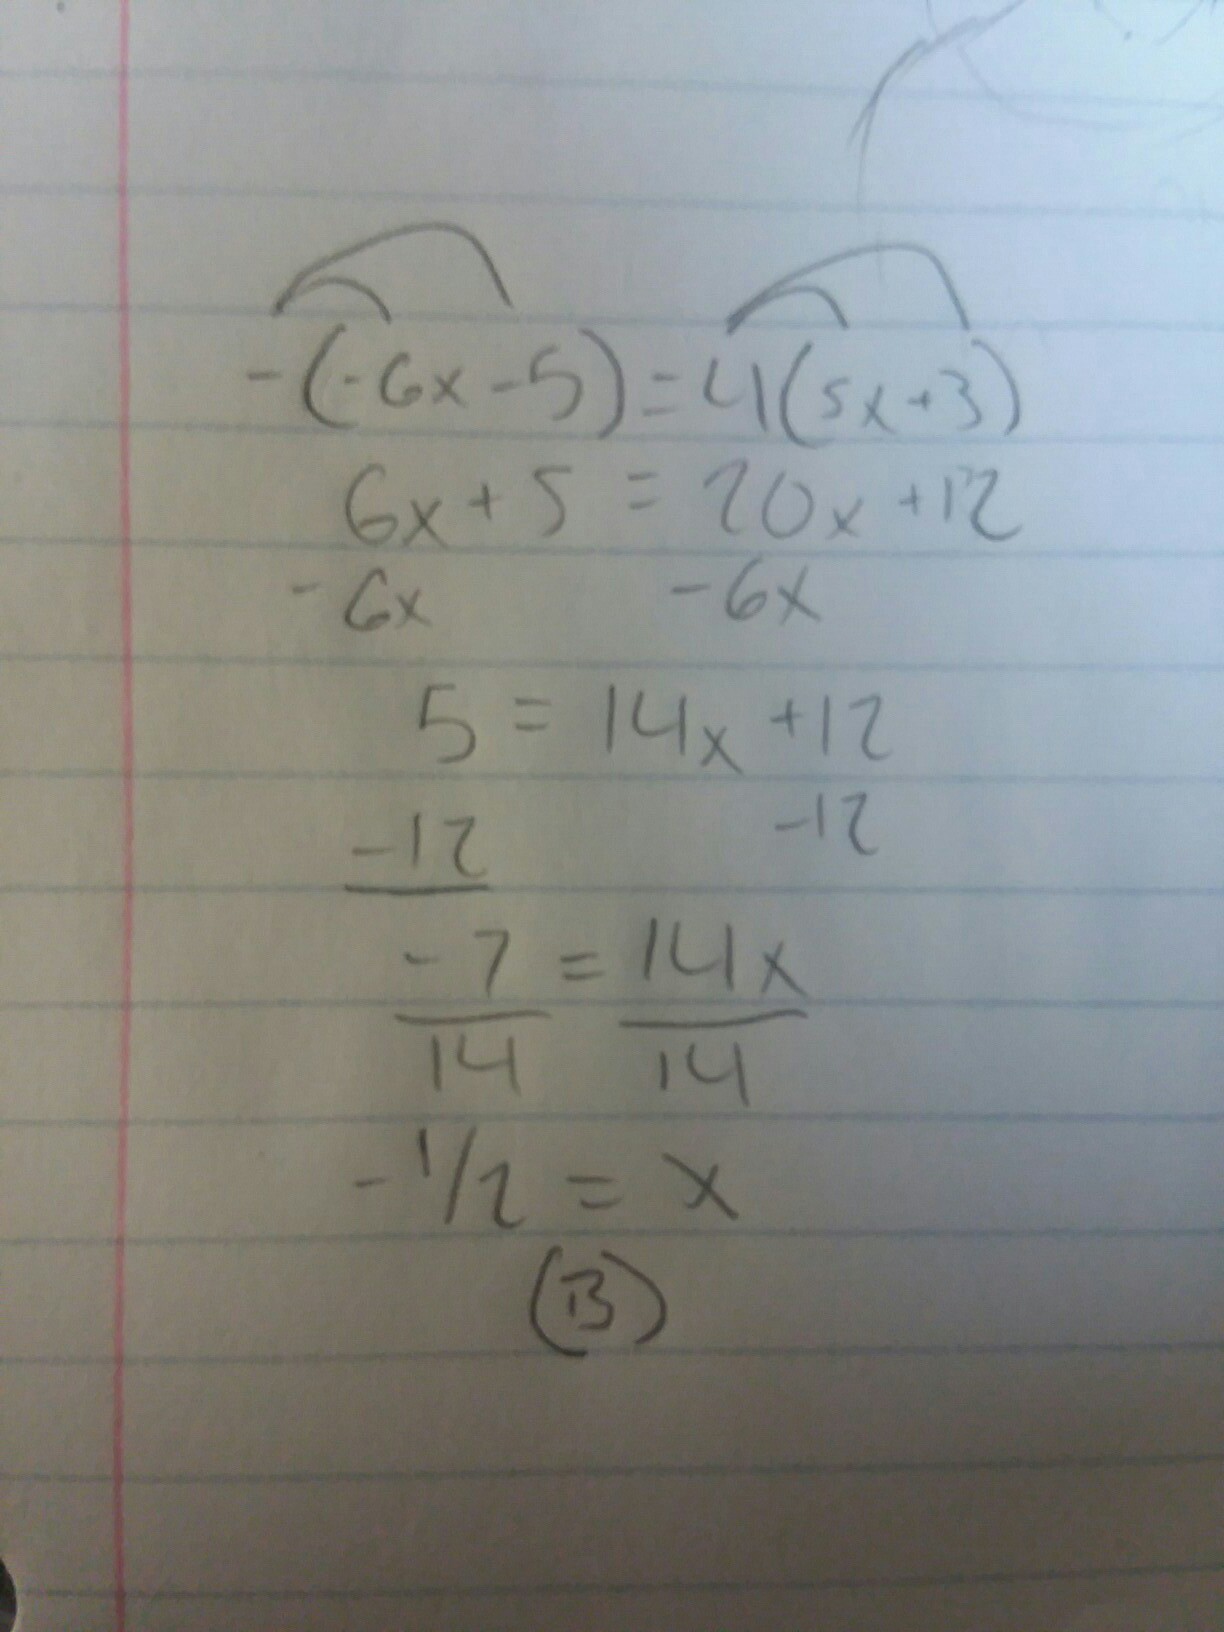 -(-6x-5)=4(5x+3)
6x+5 = 20x+12
-6x -6x
5 = 14x +12
-12 -12
-7 = 14x
14 14
-1/2 = x
(B)